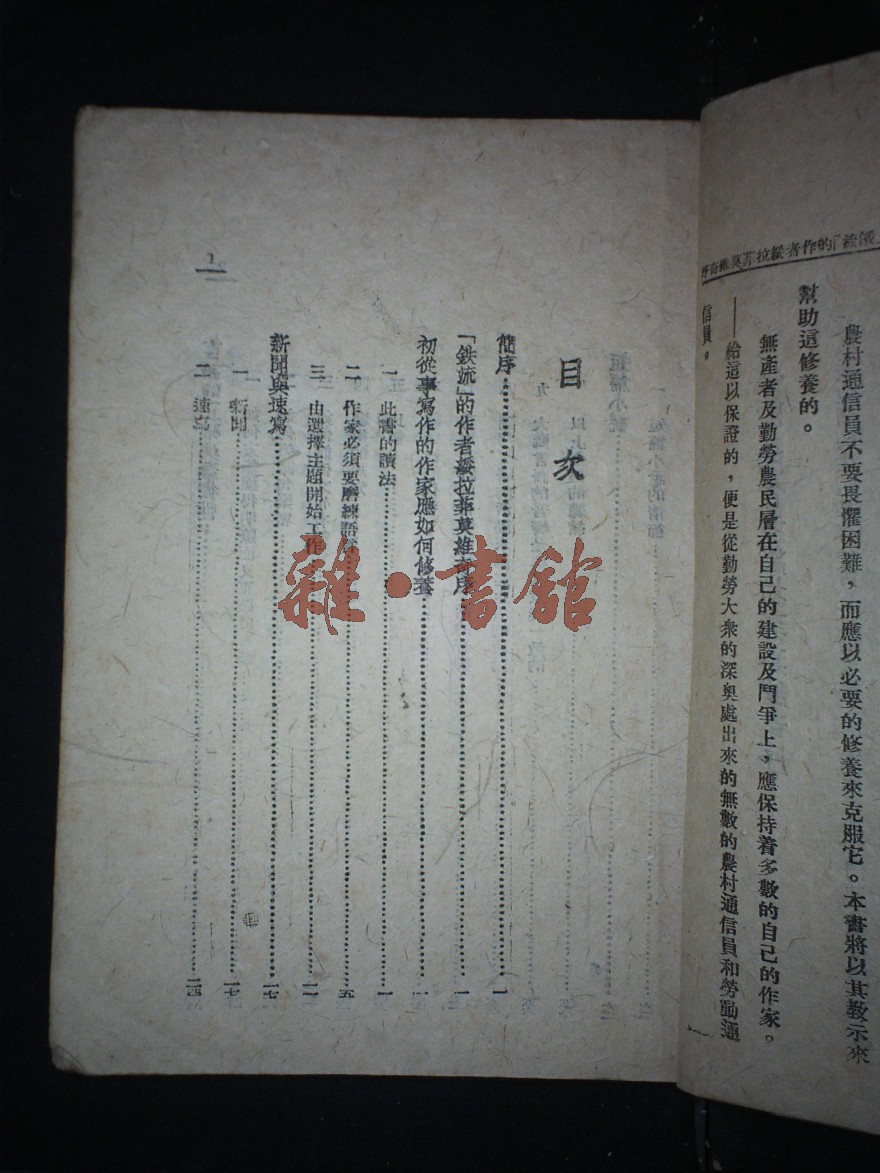 農村通信員不要畏懼困難，而應以必要的修養來克服它。本書將以其教示來
幫助這修養的。
無產者及勤勞農民層在自己的建設及鬥爭上，應保持着多數的自己的作家。
——給這以保證的，便是從勤勞大衆的深奥處出來的無數的農村通信員和勞動通
信員。
目次
簡序……一
「鉄流」的作者綏拉菲莫維奇序……一
初從事寫作的作家應如何修養……一
一 此書的讀法……一
二 作家必須要磨練語言……五
三 由選擇主題開始工作……一一
新聞與速寫……一七
一 新聞……一七
二 速寫……二四
1
雜·書館